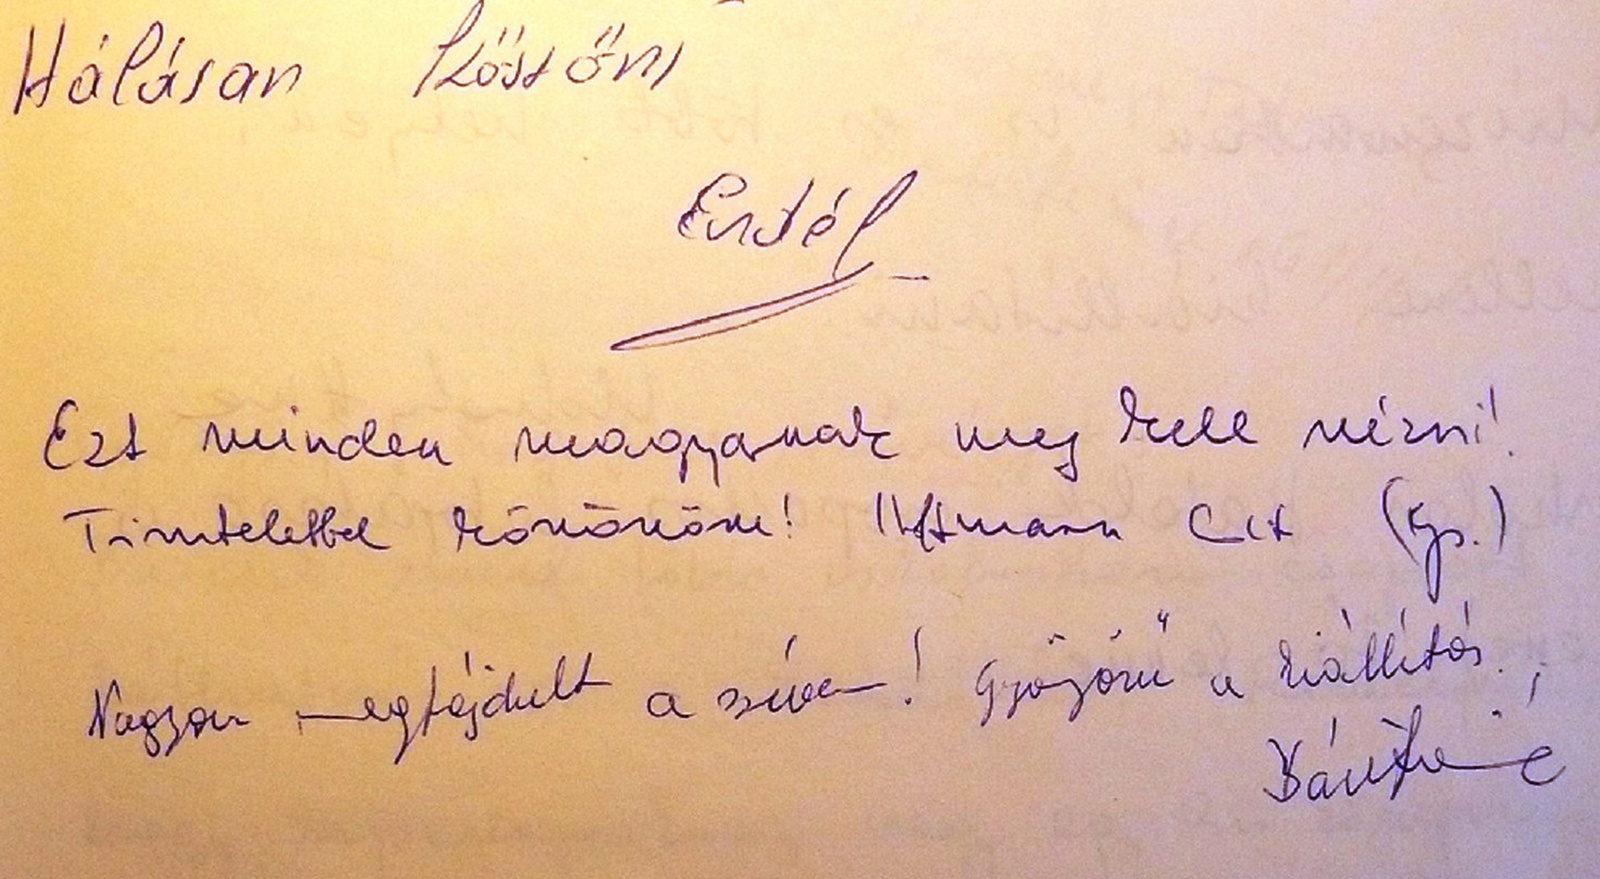 Hálásan köszöni
Ezt minden magyarnak meg kell nézni!
Tisztelettel köszönöm! (Kjs.)
Nagyon megfájdult a szívem! Gyönyörű a kiállítás.